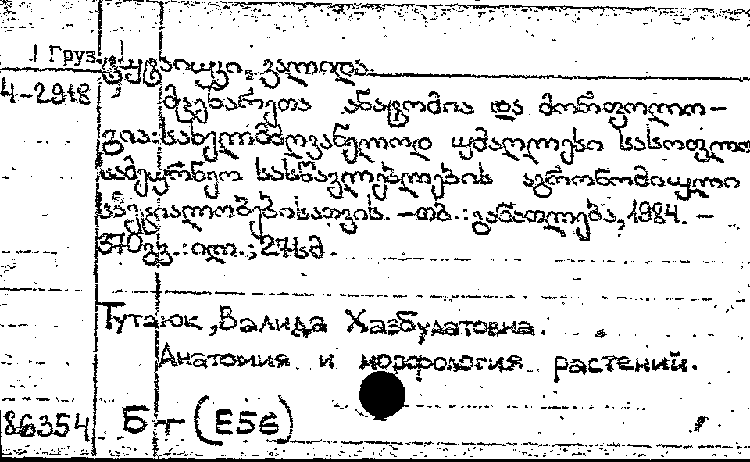 1 Груз.
4-2918
ტუტაიუკი, ვალიდა.
მცენარეთა ანატომია და მორფოლო-
გია: სახელმძღვანელოდ უმაღლესი სასოფლო
სამეურნეო სასწავლებლების აგრონომიული
სპეციალობებისათვის. – თბ.: განათლება, 1984. –
370 გვ.: ილ.; 27 სმ.
Тутаюк, Валида Хасбулатовна.
Анатомия и морфология растений.
86354 Бт (Е56)